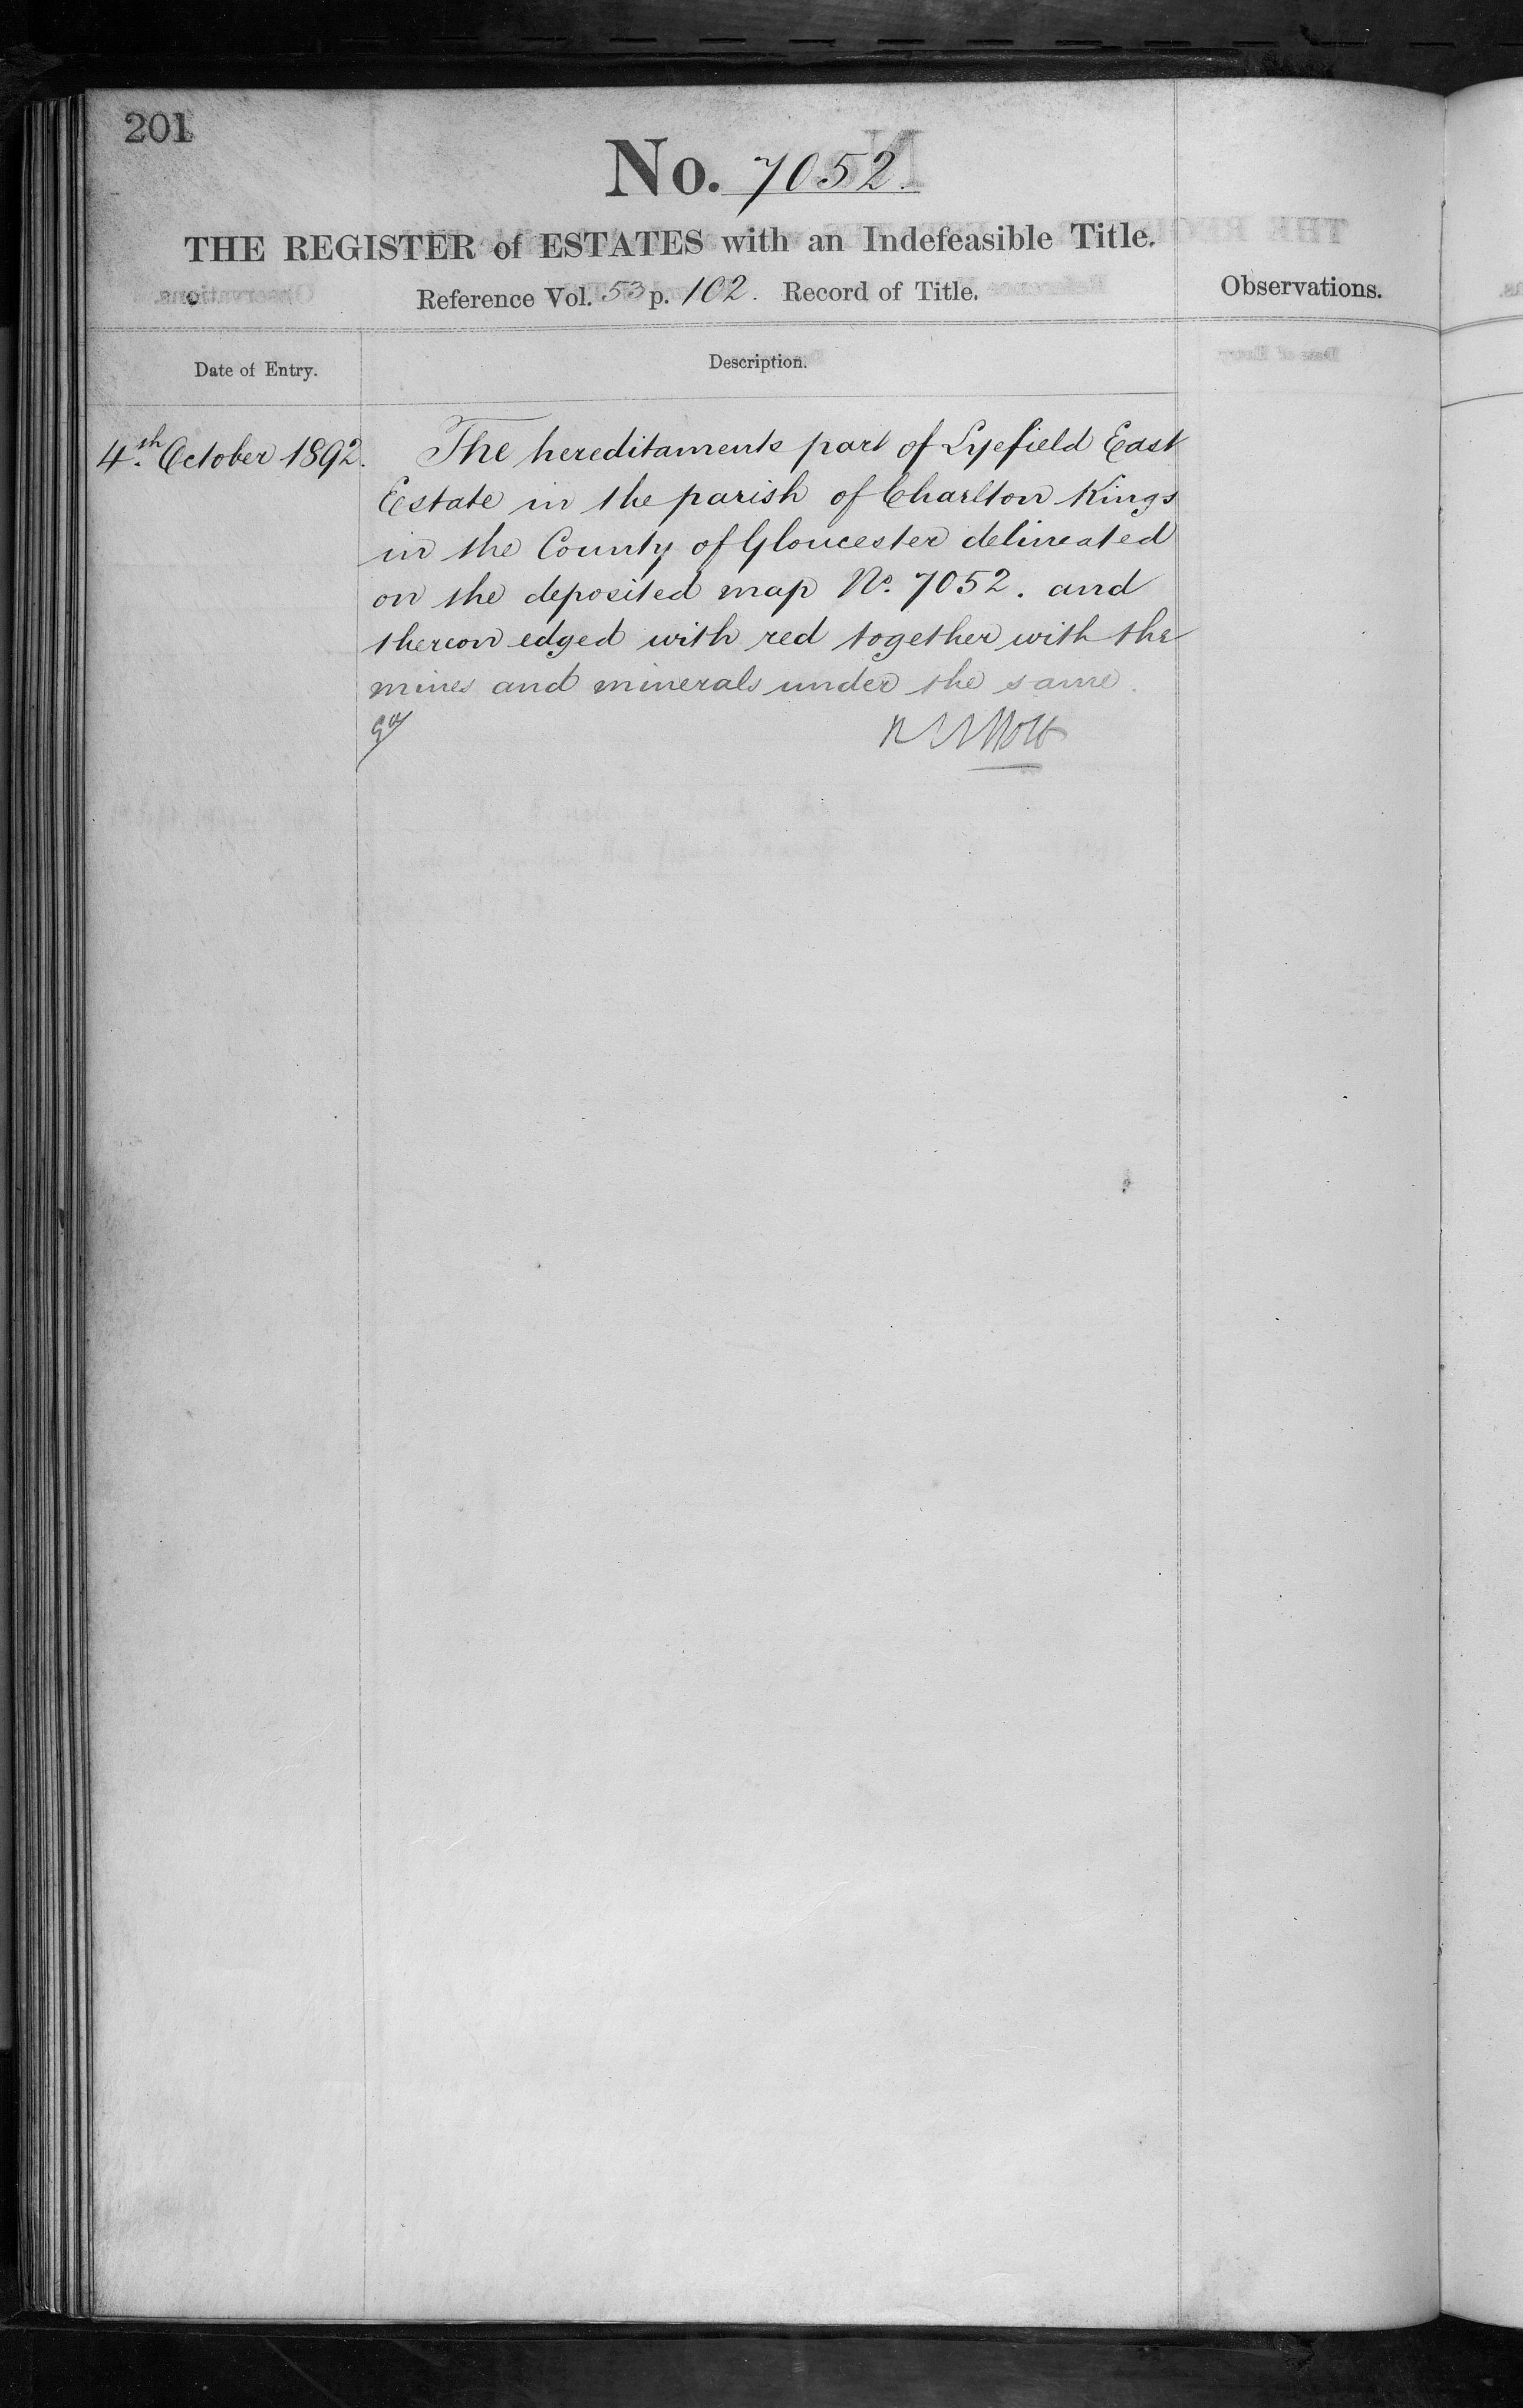 201
No. 7052.
THE REGISTER of ESTATES with an Indefeasible Title.
Reference Vol. 53 p. 102. Record of Title.
Observations.
Date of Entry.
Description.
4.th October 1892.
The hereditaments part of Lyefield East
Estate in the parish of Charlton Kings
in the County of Gloucester delineated
on the deposited map No. 7052. and
thereon edged with red together with the
mines and minerals under the same.